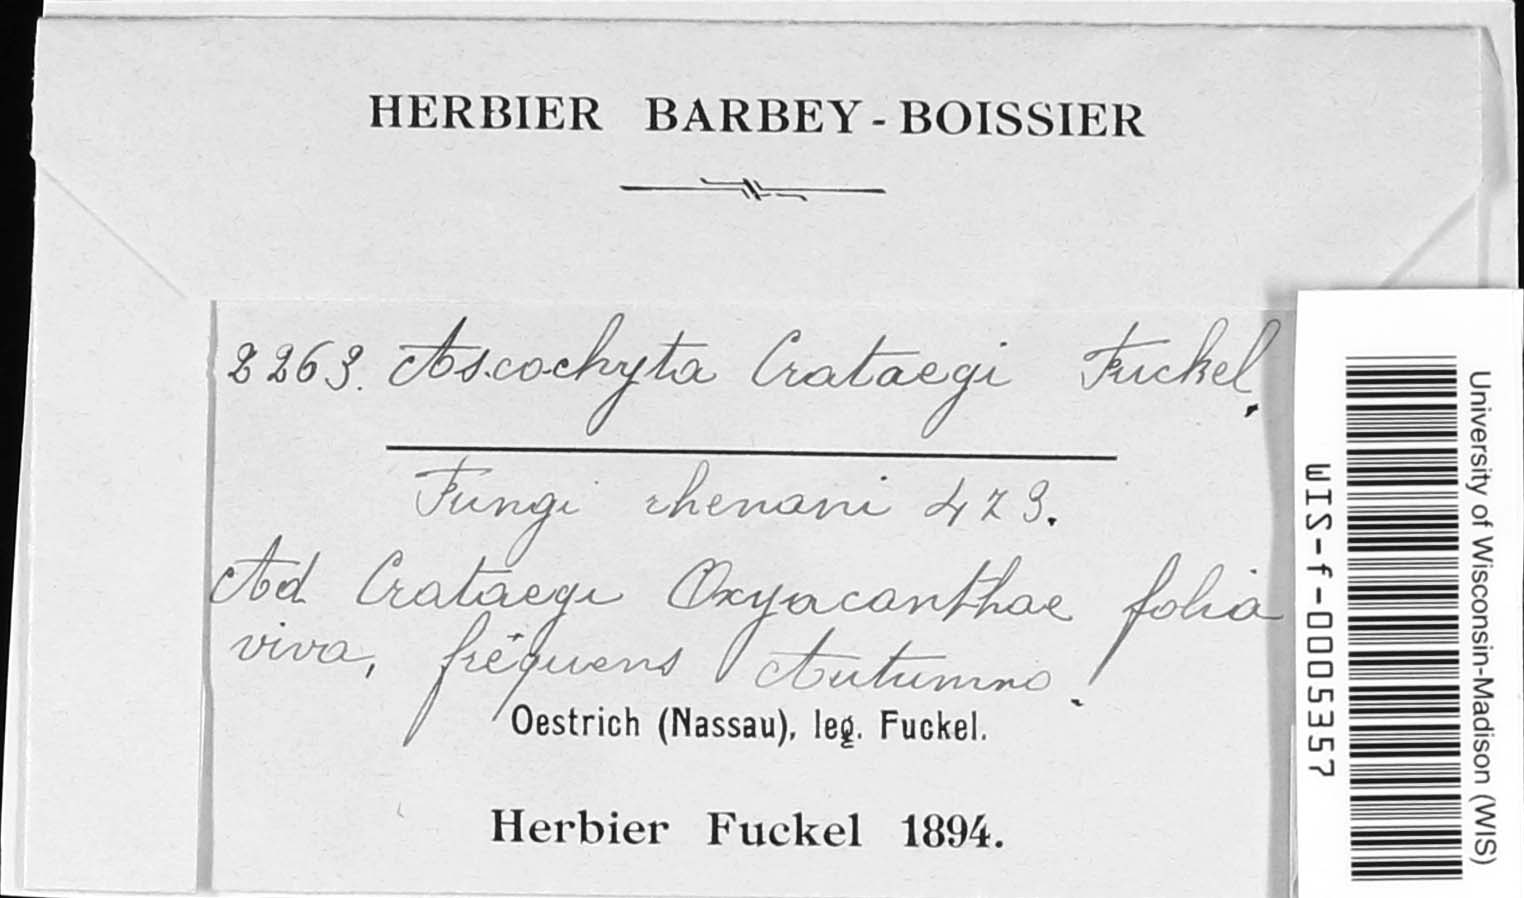 HERBIER BARBEY-BOISSIER
2263. Ascochyta Crataegi Fuckel.
Fungi rhenani 473.
Ad Crataegi Oxyacanthae folia
viva, frequens Autumno.
Oestrich (Nassau), leg. Fuckel.
Herbier Fuckel 1894.
University of Wisconsin-Madison (WIS)
WIS-f-0005357